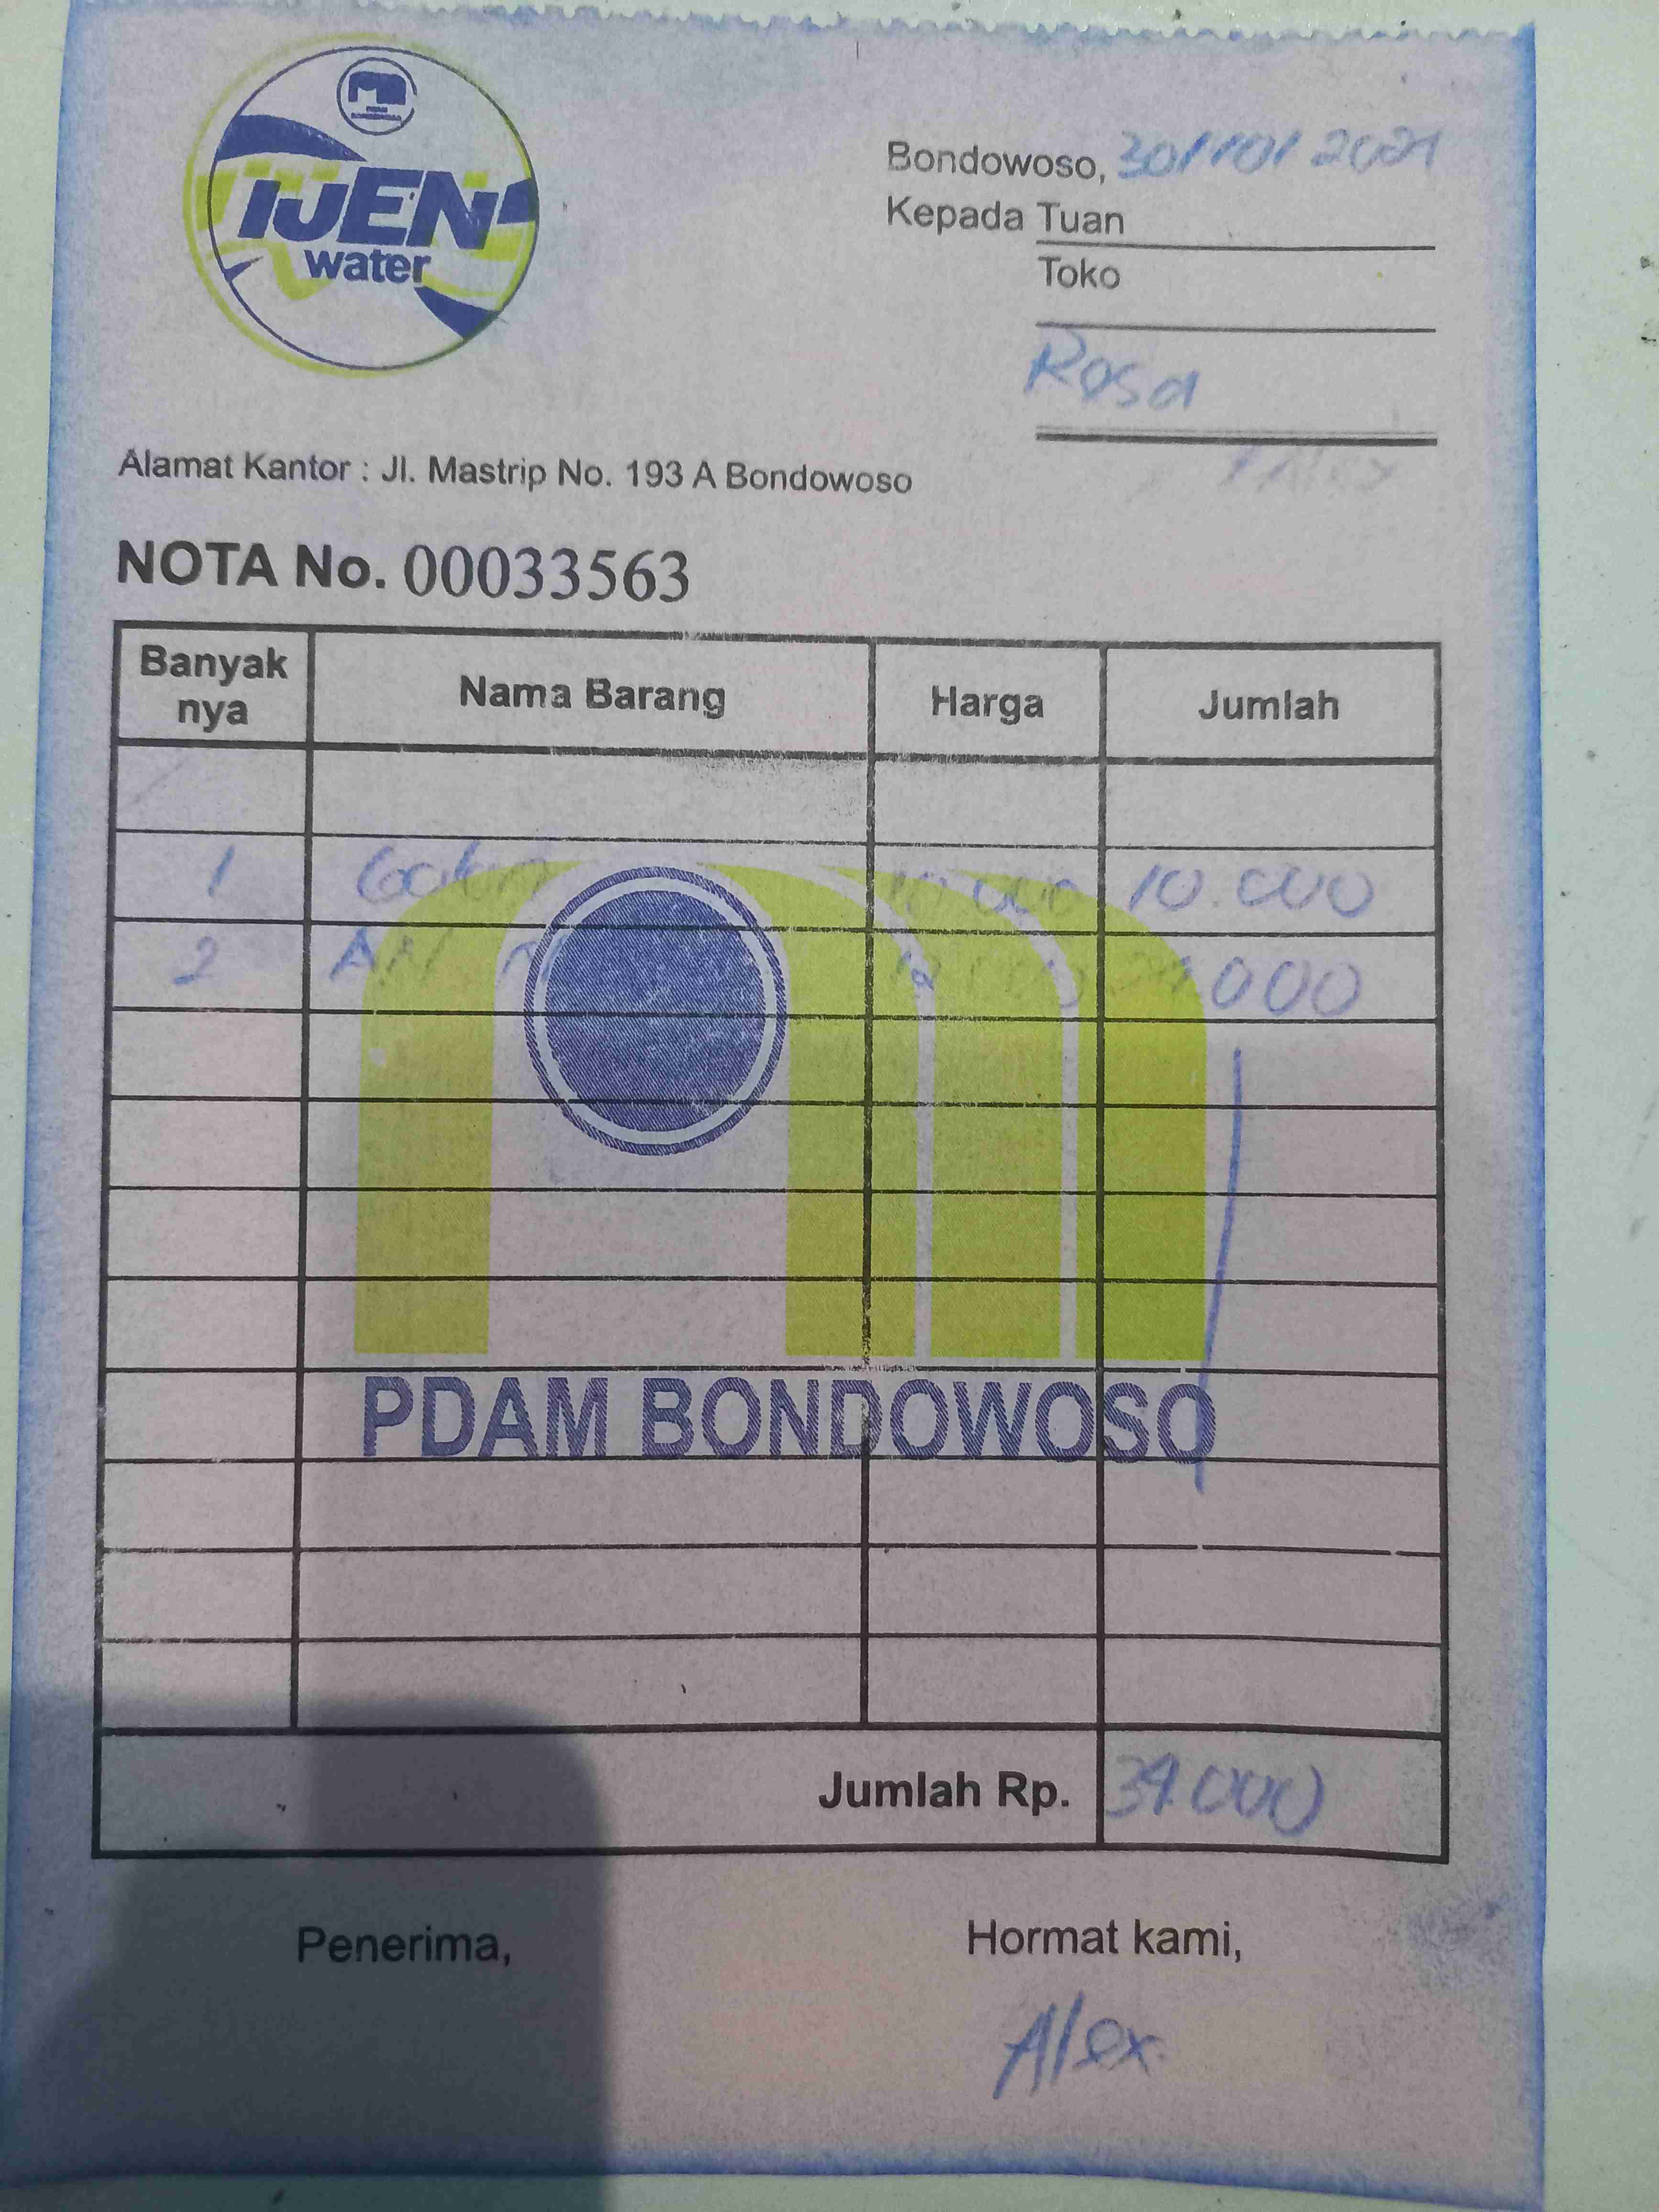 IJEN
water
Bondowoso, 30/10/2021
Kepada Tuan
Toko
Rosa
Alamat Kantor : Jl. Mastrip No. 193 A Bondowoso
NOTA No. 00033563
Banyak nya Nama Barang Harga Jumlah
1 Galon 10.000 10.000
2 12.000 000
PDAM BONDOWOSO
Jumlah Rp. 34.000
Penerima, Hormat kami,
Alex